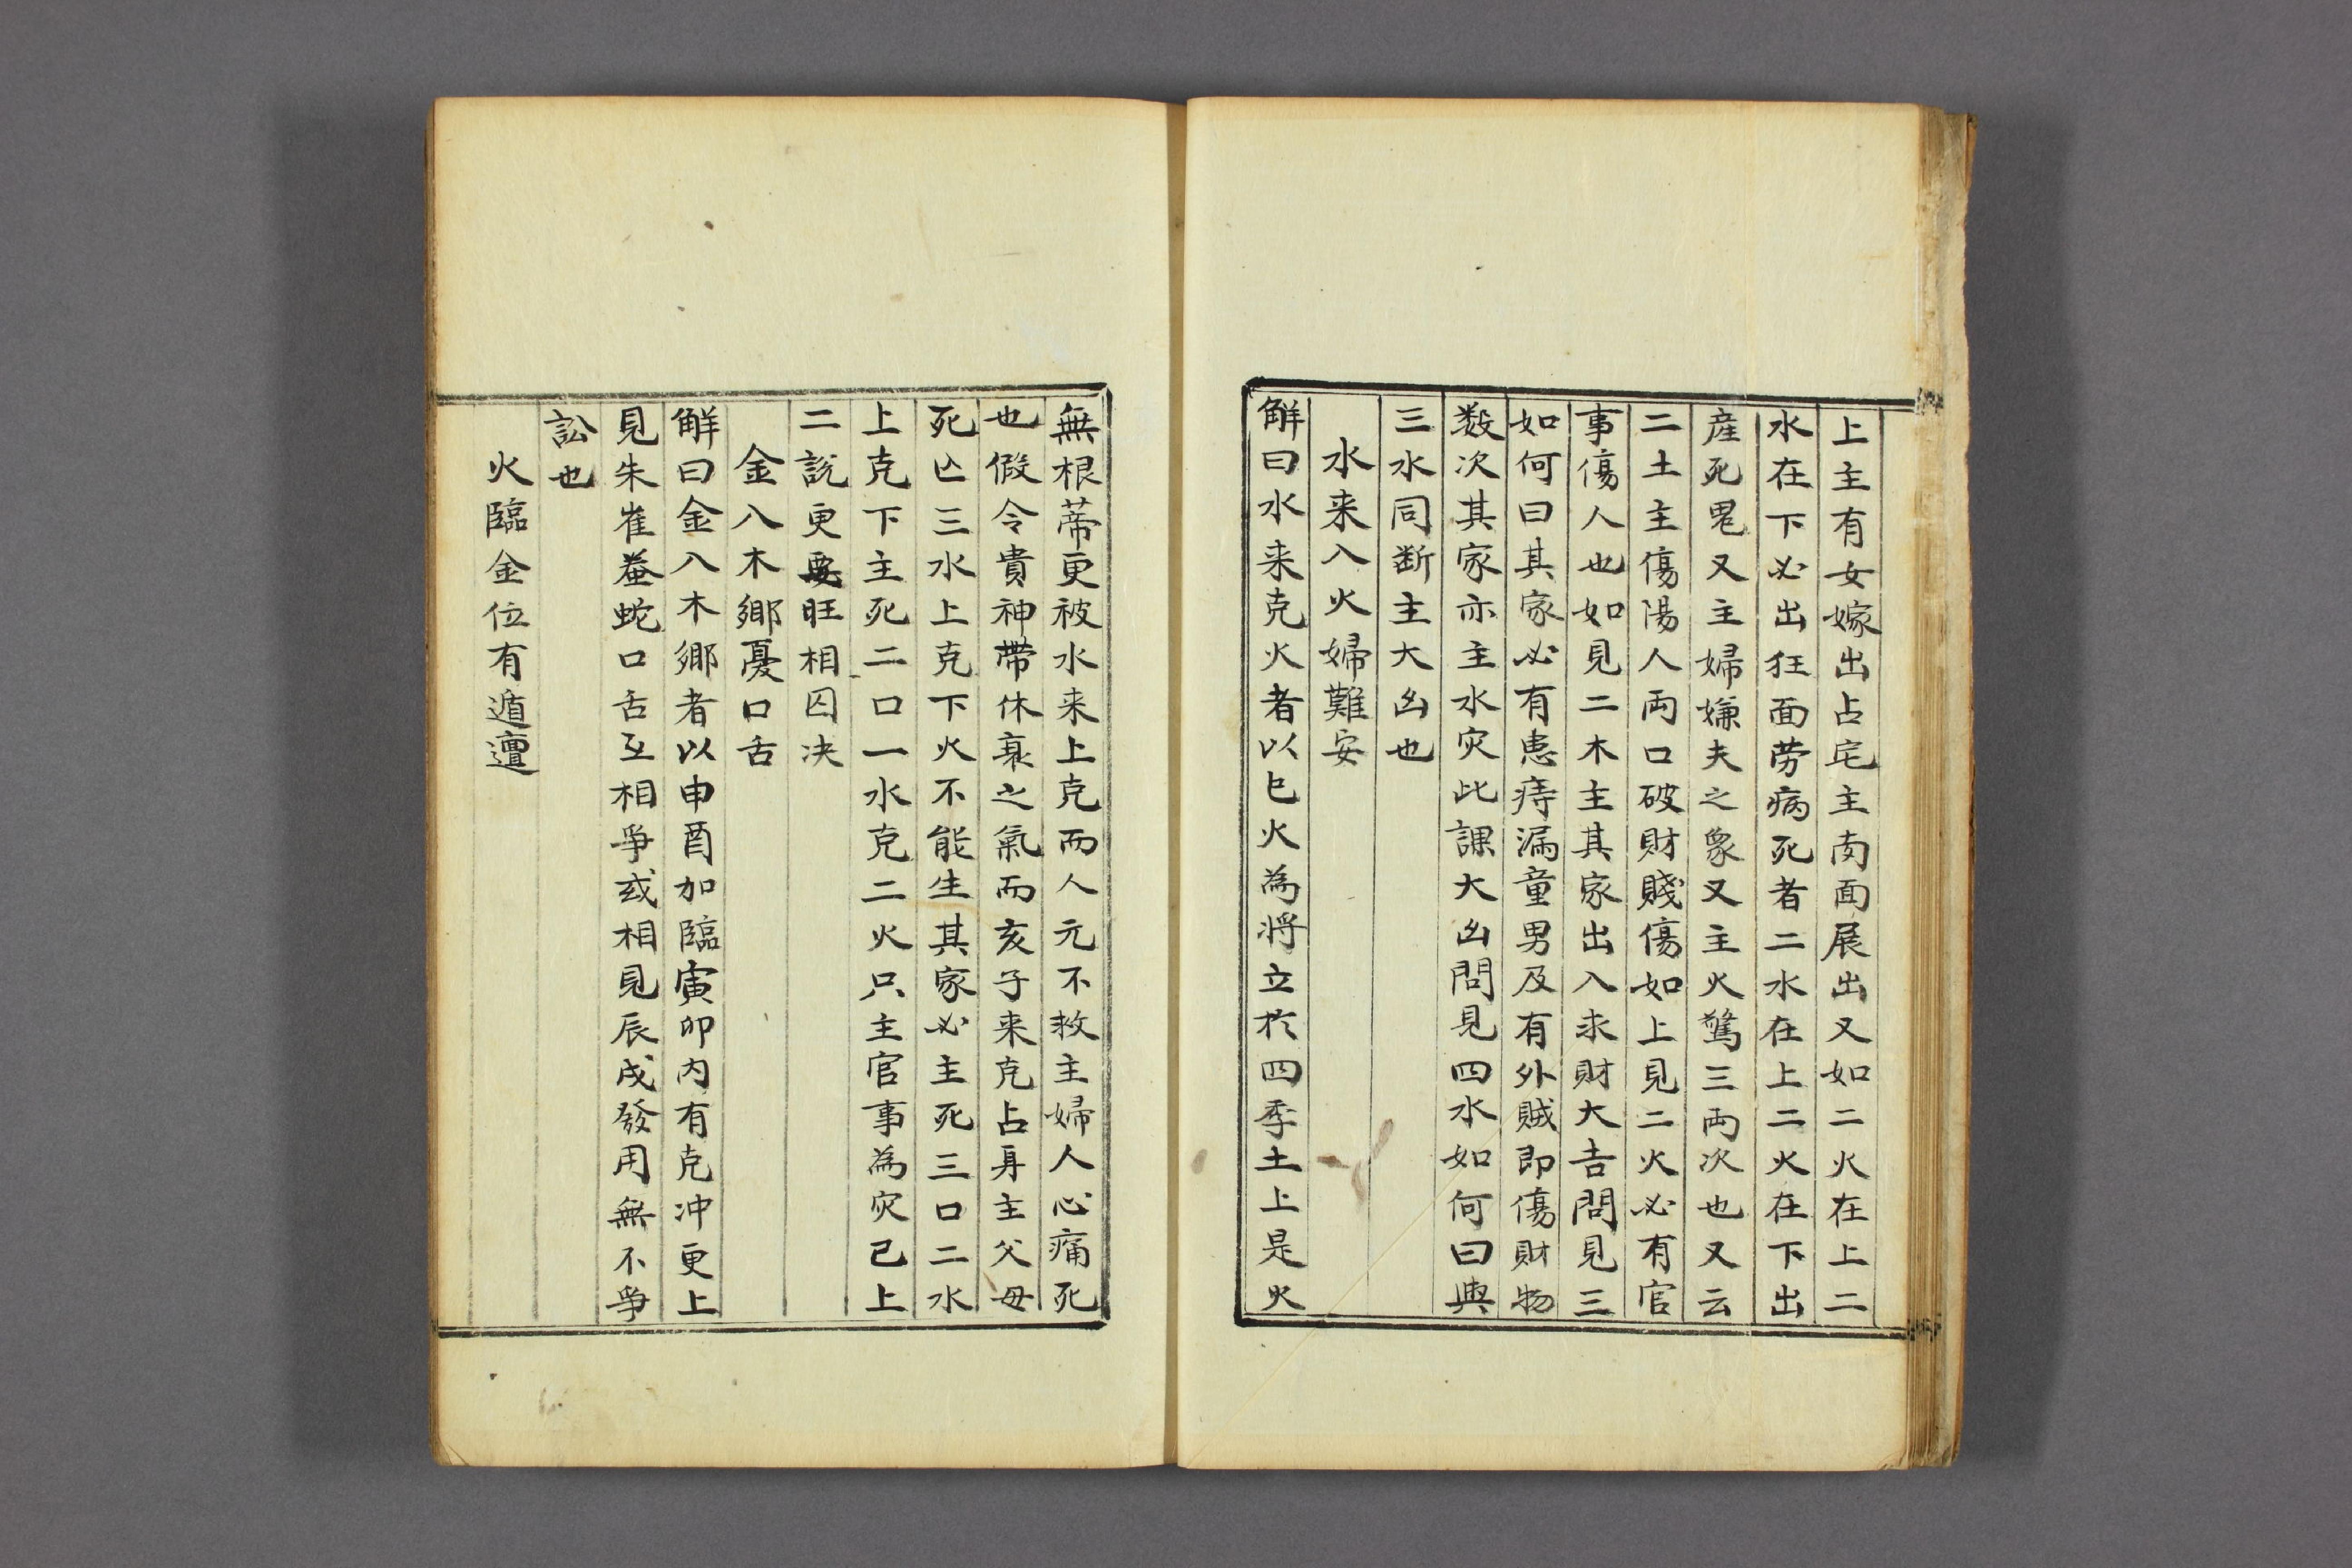 上主有女嫁出占宅主南面展出又如二火在上二
水在下必出狂面劳病死者二水在上二火在下出
産死鬼又主婦嫌夫之象又主火驚三両次也又云
二土主傷陽人両口破財賤傷如上見二火必有官
事傷人也如見二木主其家出入求財大吉問見三
如何曰其家必有患痔漏童男及有外賊即傷財物
数次其家亦主水灾此課大凶問見四水如何曰與
三水同断主大凶也
水来入火婦難安
觧曰水来克火者以巳火為將立於四季土上是火
無根蒂更被水来上克而人元不救主婦人心痛死
也假令貴神帶休衰之氣而亥子来克占身主父母
死亡三水上克下火不能生其家必主死三口二水
上克下主死二口一水克二火只主官事為灾已上
二説更要旺相囚决
金入木鄉憂口舌
觧曰金入木鄉者以申酉加臨寅卯内有克冲更上
見朱雀螣蛇口舌互相爭或相見辰戌發用無不爭
訟也
火臨金位有遁邅